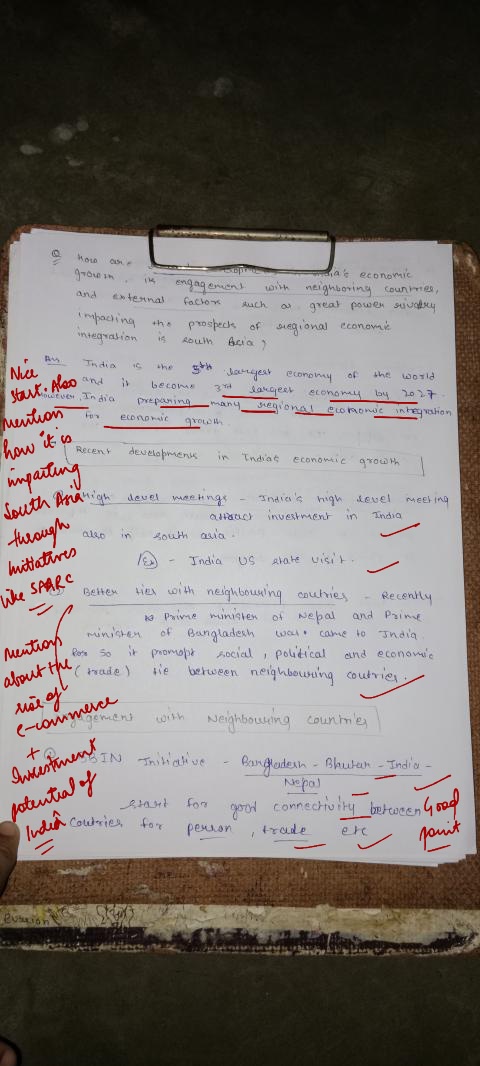 Q How are India's economic
growth, its engagement with neighboring countries,
and external factors such as great power rivalry
impacting the prospects of regional economic
integration is south Asia?
Ans India is the 5th largest economy of the world
and it become 3rd largest economy by 2027.
However, India preparing many regional economic integration
for economic growth.
Nice
start. Also
mention
how it is
impacting
South Asia
through
Initiatives
like SAARC
Recent developments in India's economic growth
High level meetings - India's high level meeting
attract investment in India
also in south asia.
Ex - India US state visit.
Better ties with neighbouring coutries - Recently
Prime minister of Nepal and Prime
minister of Bangladesh was came to India.
for so it prompt social, political and economic
(trade) tie between neighbouring coutries.
Mention
about the
rise of
e-commerce
+
Investment
potential of
India
engagement with Neighbouring Countries
BBIN Initiative - Bangladesh - Bhutan - India -
Nepal
start for good connectivity between
Coutries for person, trade etc
Good
point